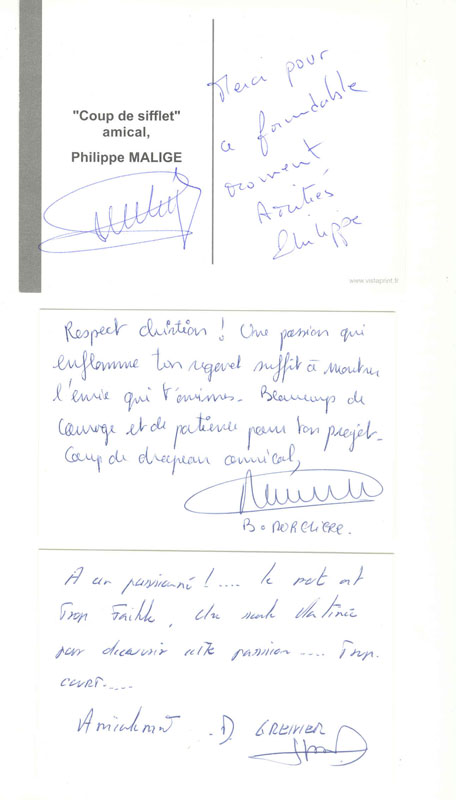 "Coup de sifflet"
amical,
Philippe MALIGE
Merci pour
ce formidable
moment
Amitiés
Philippe
www.vistaprint.fr
Respect christian ! Une passion qui
enflamme ton regard suffit à montrer
l'envie qui t'animes. Beaucoup de
courage et de patience pour ton projet.
Coup de drapeau amical,
B. MORCHERE.
A un passionné !.... le mot est
trop faible, une seule matinée
pour découvrir cette passion.... trop
court.....
Amicalement D. GRENIER